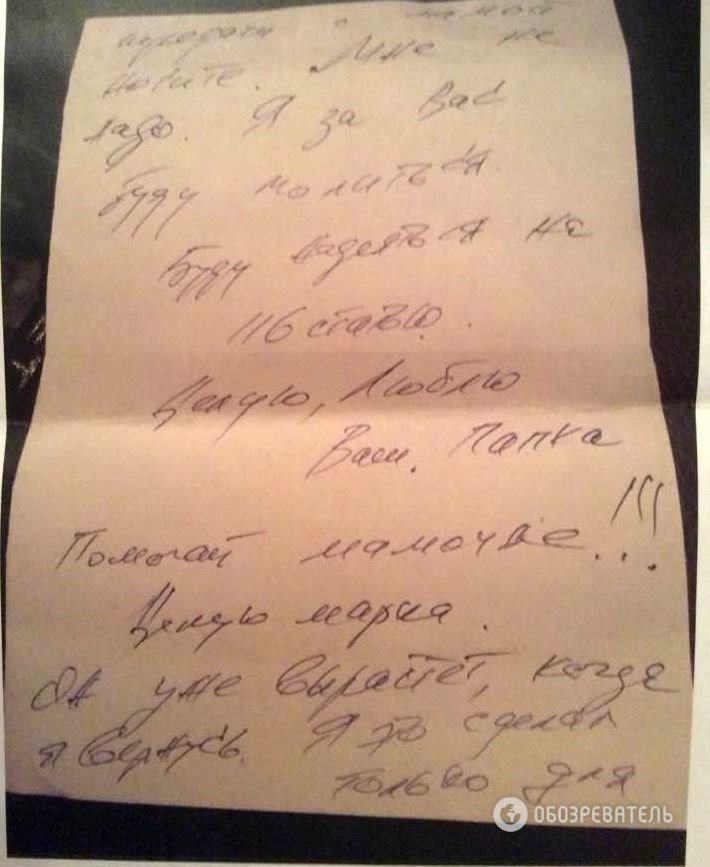 носите. Мне не
надо. Я за вас
буду молиться.
Буду надеяться на
116 статью.
Целую, Люблю
Ваш. Папка
Помогай мамочке!!!
Целую марка.
Он уже вырастет, когда
я вернусь. Я это сделал
только для
ОБОЗРЕВАТЕЛЬ